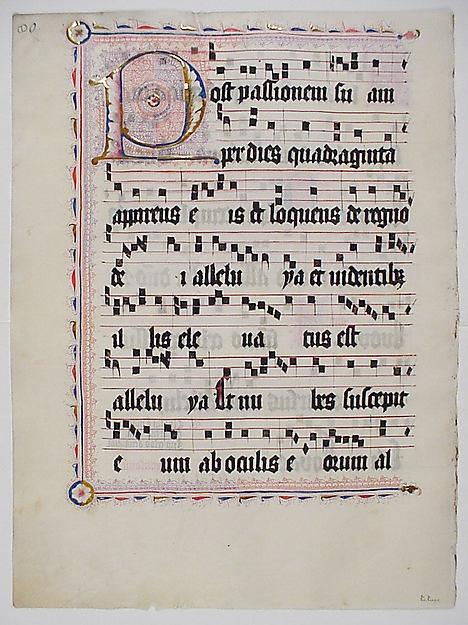 Post passionem su am
per dies quadraginta
apparens e is et loquens de regno
de i allelu ya et videntibꝫ
il lis ele ua tus est
allelu ya Et nu bes suscepit
e um ab oculis e orum al